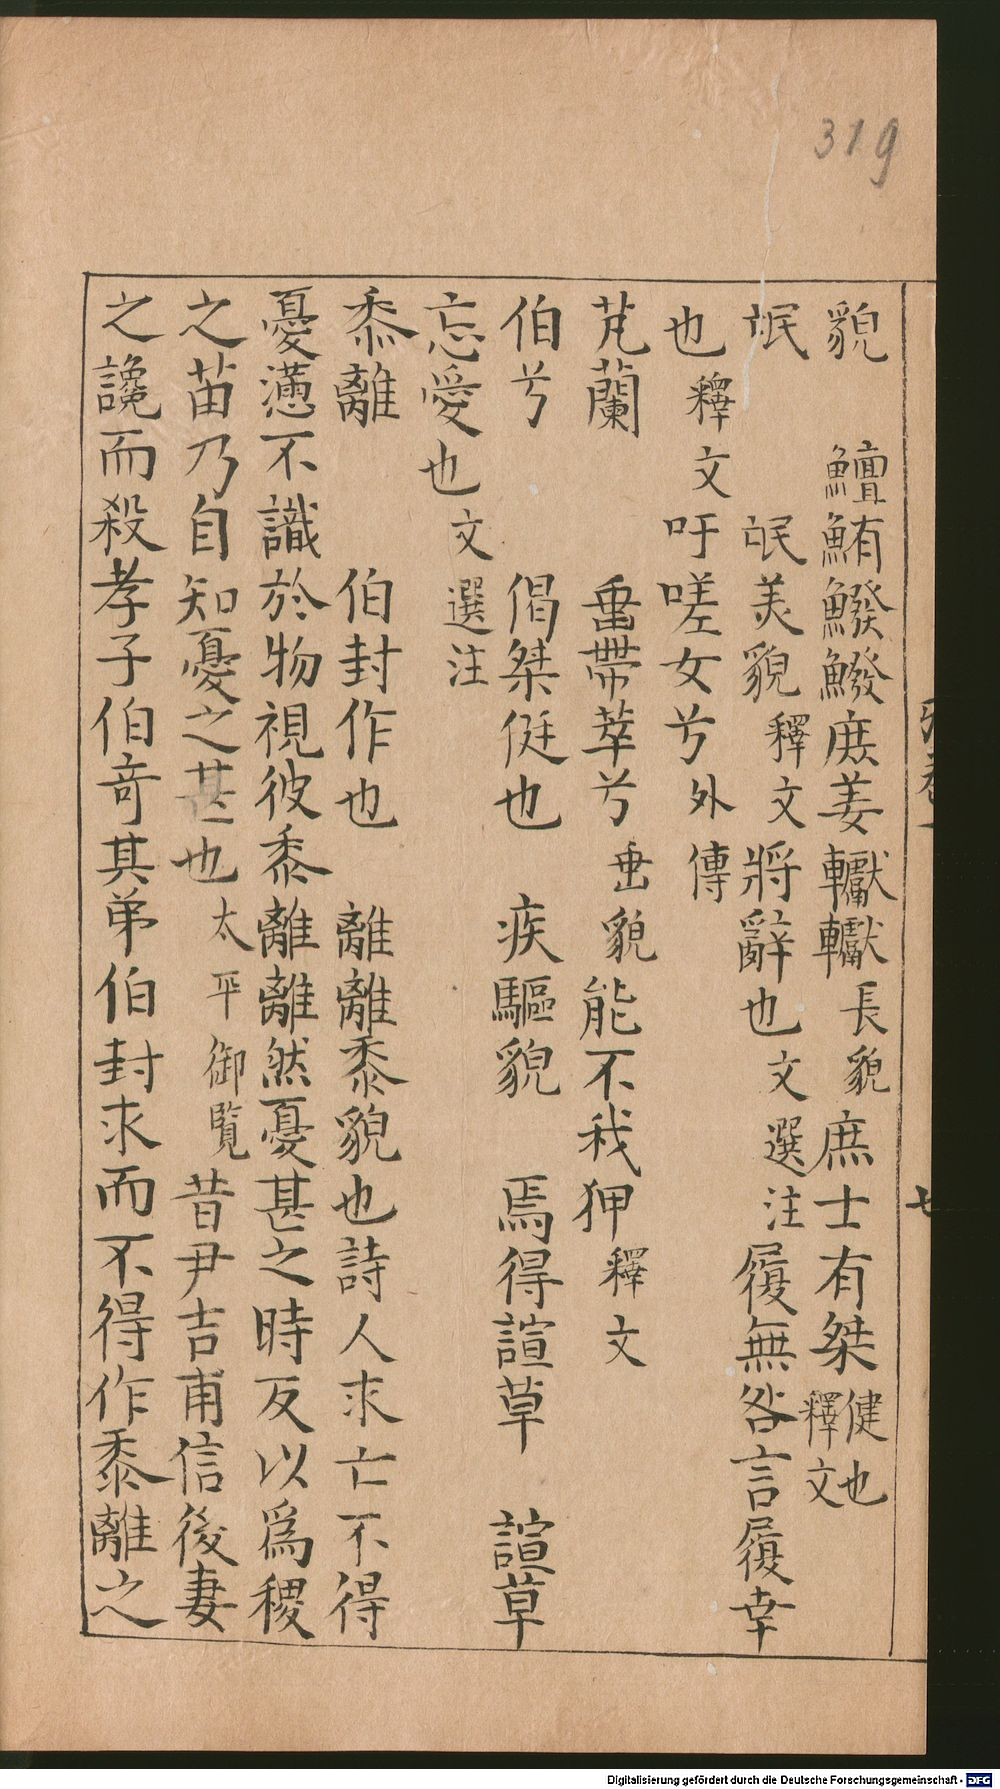 319
貌　鱣鮪鱍鱍庶姜轥轥長貌庶士有桀健也釋文
氓　氓美貌釋文將辭也文選注履無咎言履幸
也釋文吁嗟女兮外傳
芄蘭　垂帶萃兮垂貌能不我狎釋文
伯兮　偈桀侹也　疾驅貌　焉得諠草　諠草
忘憂也文選注
黍離　伯封作也　離離黍貌也詩人求亡不得
憂懣不識於物視彼黍離離然憂甚之時反以爲稷
之苗乃自知憂之甚也太平御覧昔尹吉甫信後妻
之讒而殺孝子伯奇其弟伯封求而不得作黍離之
Digitalisierung gefördert durch die Deutsche Forschungsgemeinschaft - DFG